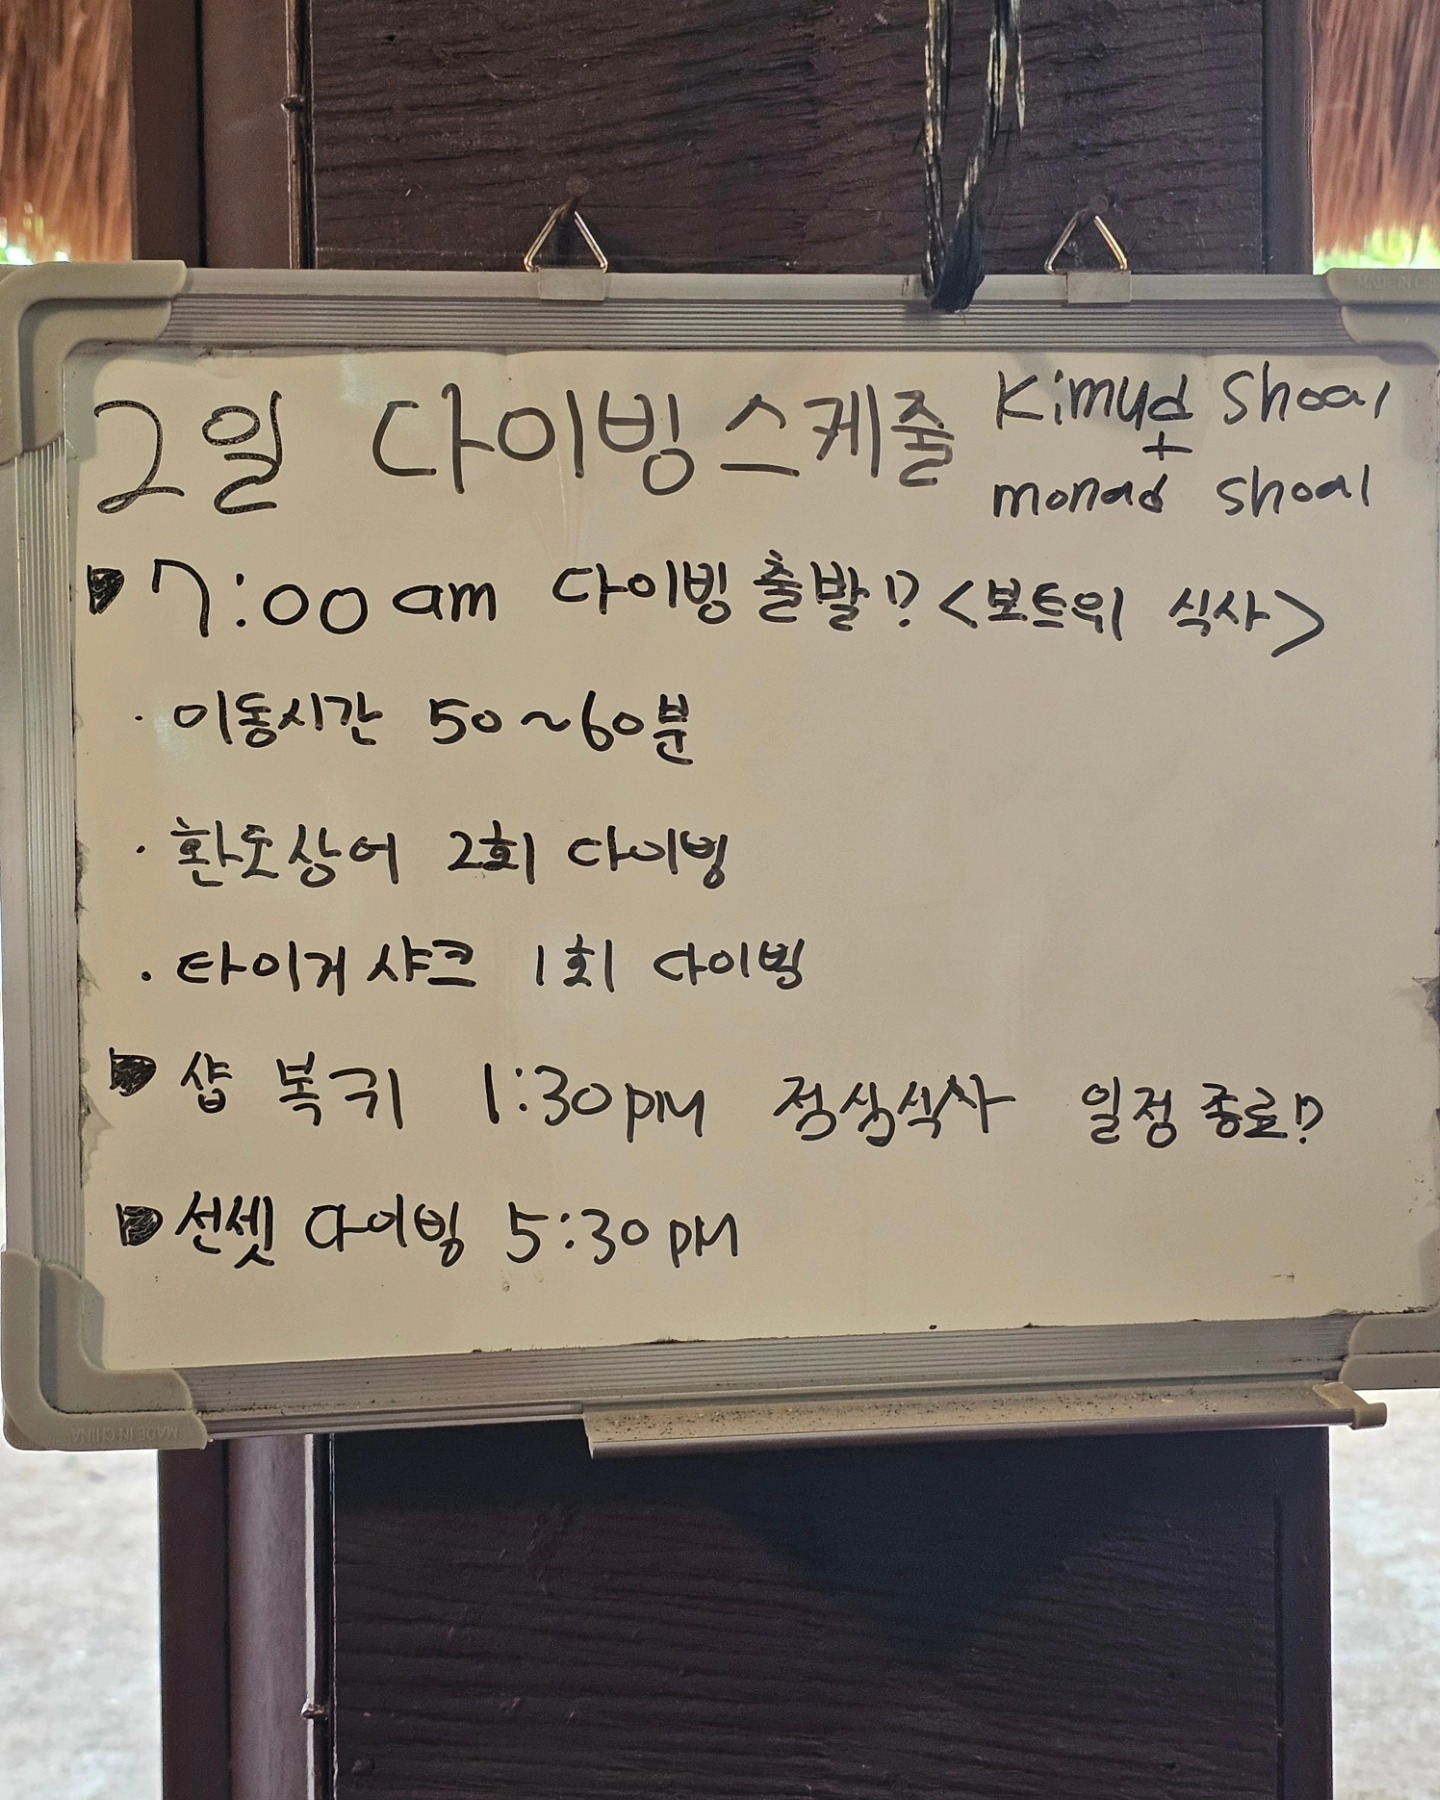 2일 다이빙 스케줄 Kimud Shoal
+
monad shoal
7:00 am 다이빙 출발!? <보트위 식사>
· 이동시간 50~60분
· 환도상어 2회 다이빙
· 타이거 샤크 1회 다이빙
샵 복귀 1:30 pm 점심식사 일정 종료!?
선셋 다이빙 5:30 pm